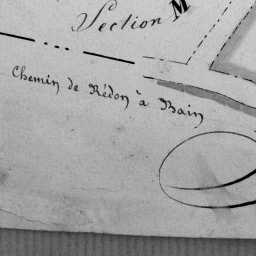 Section M
Chemin de Rédon à Bain